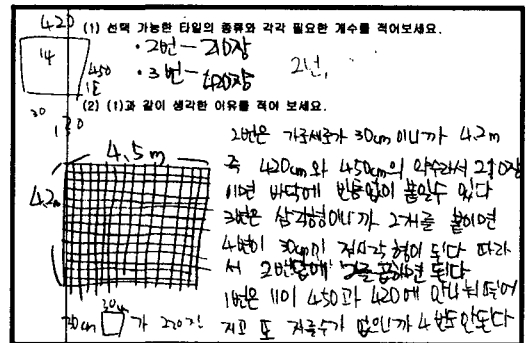 420 (1) 선택 가능한 타일의 종류와 각각 필요한 개수를 적어보세요.
14
· 2번 - 210장
450
· 3번 - 420장
(2) (1)과 같이 생각한 이유를 적어 보세요.
30
4.5m
4.2m
2번은 가로세로가 30cm이니까 4.2m
즉 420cm와 450cm의 약수라서 210장
이면 바닥에 빈틈없이 붙일수 있다
3번은 삼각형이니까 2개를 붙이면
4변이 30cm인 정사각형이 된다 따라
서 2번답에 2를 곱하면 된다
1번은 11이 450과 420에 안나눠떨어
지고 또 자를수가 없으니까 4번도 안된다
30cm
30cm 가 210장